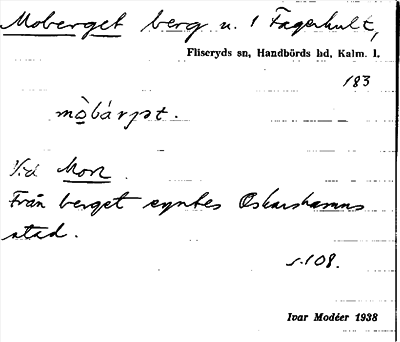 Moberget berg n. 1 Fagerhult,
Fliseryds sn, Handbörds hd, Kalm. l.
183
mòbárjət.
Vid Mon.
Från berget syntes Oskarshamns
stad.
s. 108.
Ivar Modéer 1938